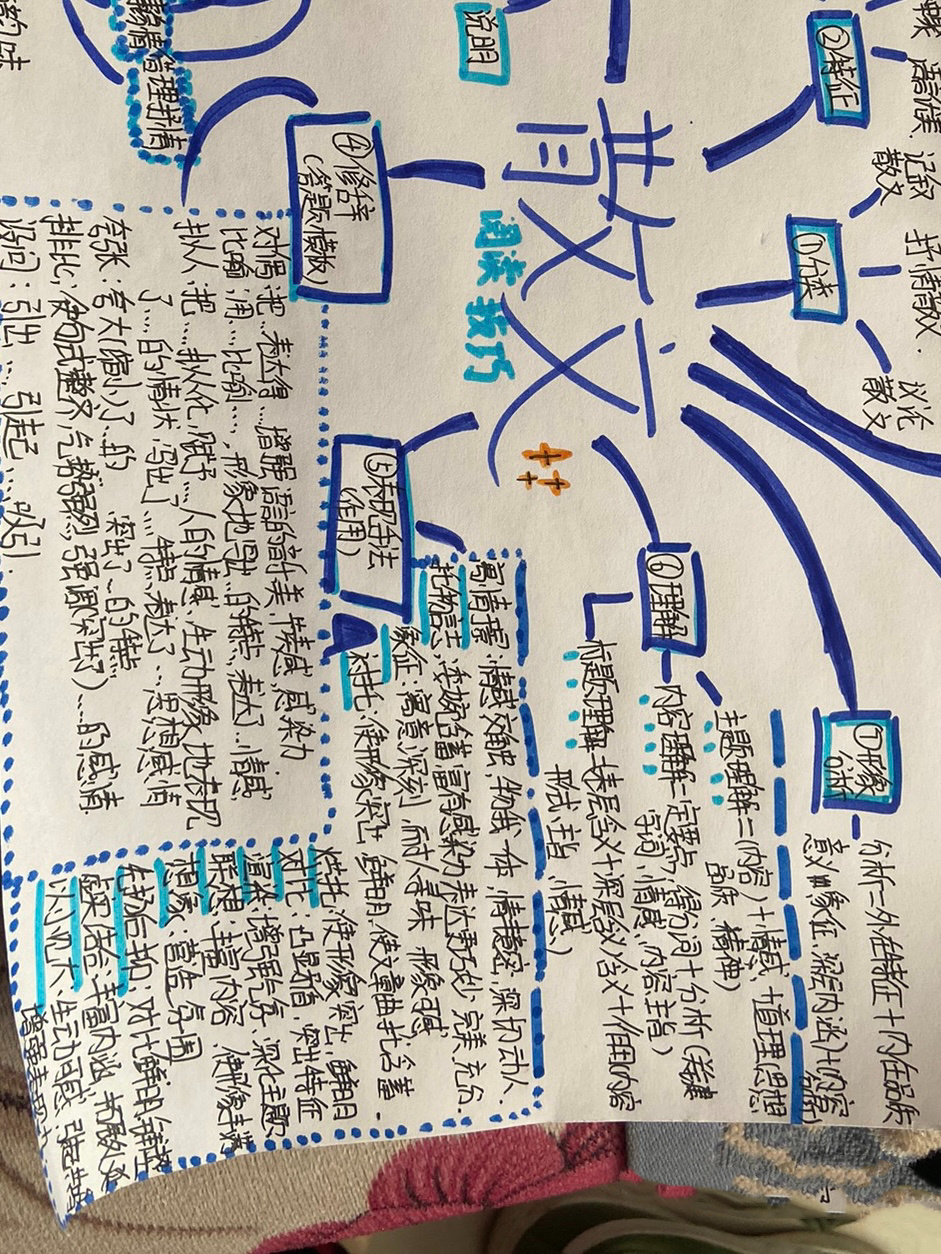 散文
阅读技巧
②特征
语言美
①分类
记叙
散文
抒情散文
议论
散文
说明
④修辞
(答题模板)
对偶:把…表达得…增强语言的简洁美、情感,感染力
比喻:用…比喻…,形象地写出…的特点,表达了…情感,
拟人:把…拟人化,赋予…人的情感,生动形象地表现
了…的情状,写出了…特点,表达了…思想感情
夸张:夸大(缩小)了…的…突出了…的特点
排比:使句式整齐,气势强烈,强调(突出了)……的感情
设问:引出…引起…吸引
⑤表现手法
(作用)
寓情于景:情景交融,物我一体,情真意密,深切动人.
托物言志:委婉含蓄富有感染力表达更巧妙、完美、充分.
象征:寓意深刻,耐人寻味,形象可感,
衬托:使形象突出,鲜明,使文章曲折含蓄.
烘托:使形象突出,鲜明
对比:凸显矛盾,突出特征
渲染:增强气氛,深化主题
联想:丰富内容,使形象丰满
想象:营造氛围
先扬后抑:对比鲜明
虚实结合:丰富内涵,拓展
以小见大:生动可感,引起共鸣
增强表现力
⑥理解
标题理解=表层含义+深层含义+作用(内容
形式、主旨、情感)
内容理解=定要点、得分词+分析(关键
字词,情感,内容主旨)
主题理解=(内容)+情感、道理思想
品质、精神)
⑦形象
分析
分析=外在特征+内在品质
意义(象征、深层内涵)+(内容